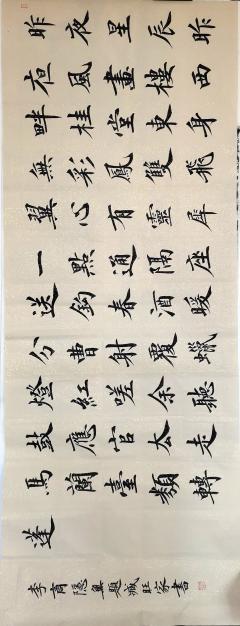 昨夜星辰昨
夜風畫樓西
畔桂堂東身
無彩鳳雙飛
翼心有靈犀
一點通隔座
送鈎春酒暖
分曹射覆蠟
燈紅嗟余聽
鼓應官去走
馬蘭臺類轉
蓬
李商隱無題臧旺家書